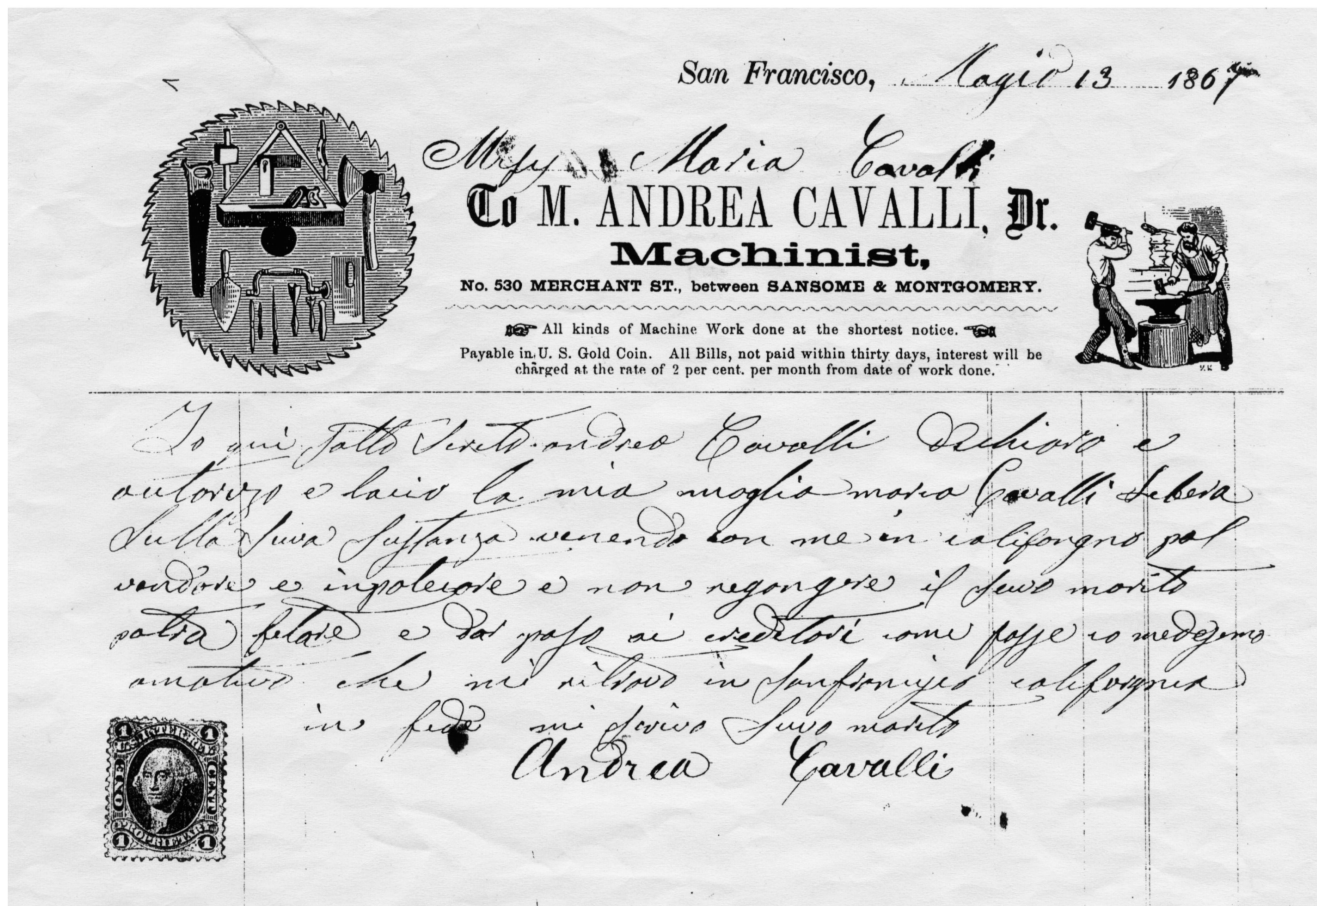 San Francisco, Magio 13 1867
Maria Cavalli
To M. ANDREA CAVALLI, Dr.
Machinist,
No. 530 MERCHANT ST., between SANSOME & MONTGOMERY.
All kinds of Machine Work done at the shortest notice.
Payable in U. S. Gold Coin. All Bills, not paid within thirty days, interest will be
charged at the rate of 2 per cent. per month from date of work done.
Io qui sotto scrito andrea Cavalli dechiaro e
autorizo e lacio la mia moglia maria Cavalli libera
sulla suva sustanza venendo con me in califorgno
vendere e e non il suvo marito
potra fetare e dar ai creditori come fosse io medezemo
amotivo che mi ritrovo in califorgnia
in fede mi scrivo suvo marito
Andrea Cavalli
1 1
ONE CENT
PROPRIETARY
1 1